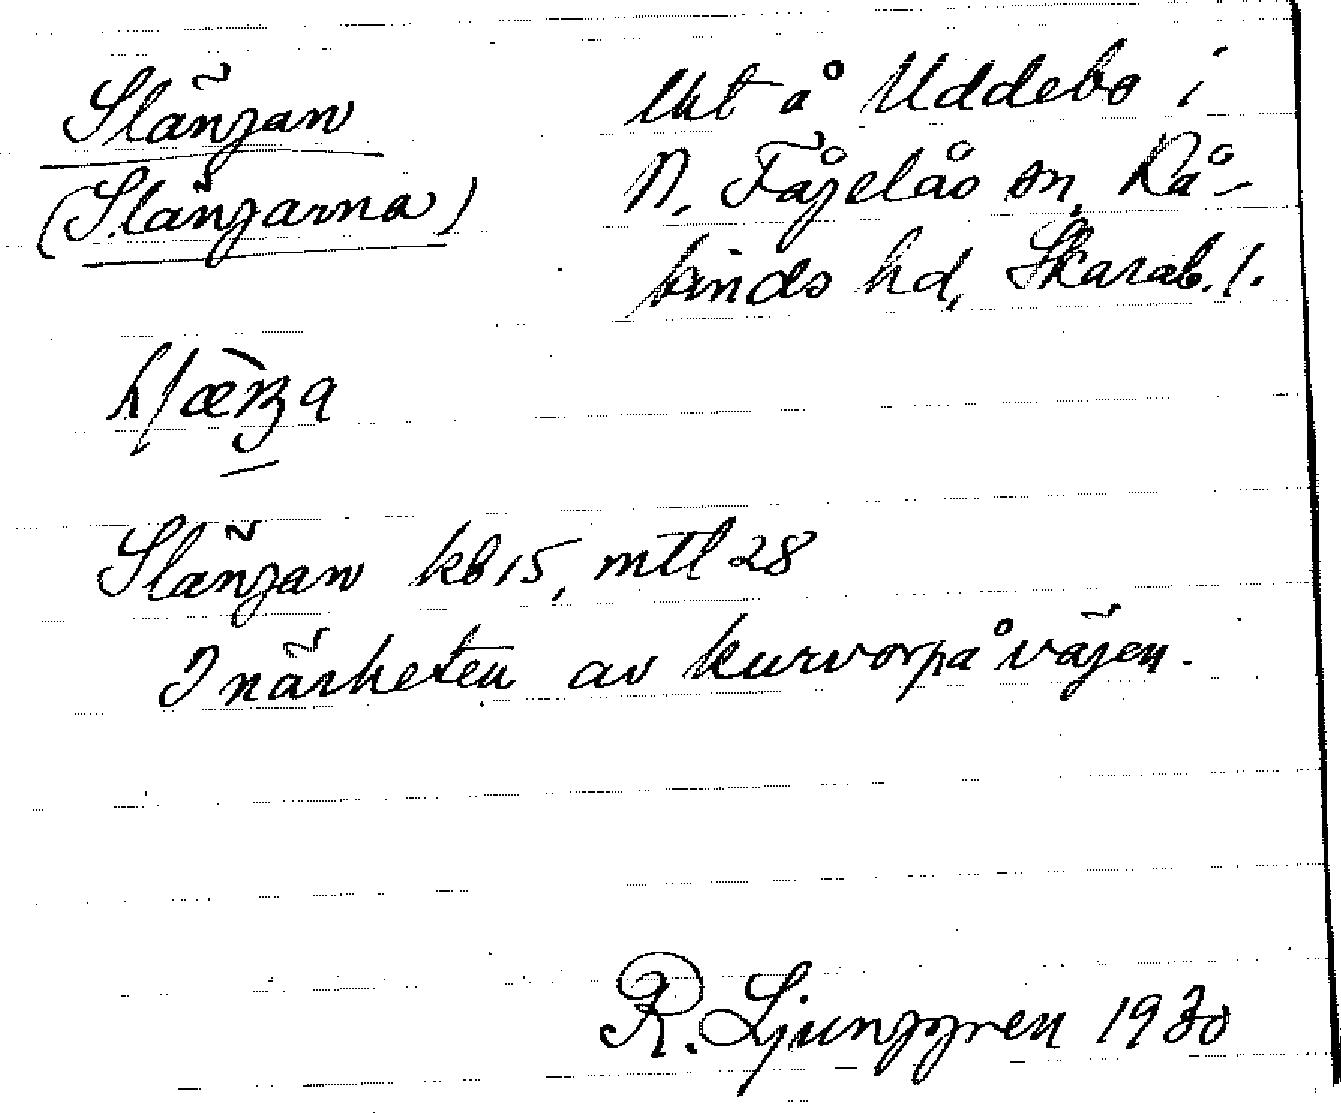 Slängan
(Slängarna)
Ukt å Uddebo i
N. Fågelås sn, Kå-
kinds hd, Skarab. l.
Slängan kb 15, mtl 28
I närheten av kurvor på vägen.
R. Ljunggren 1930